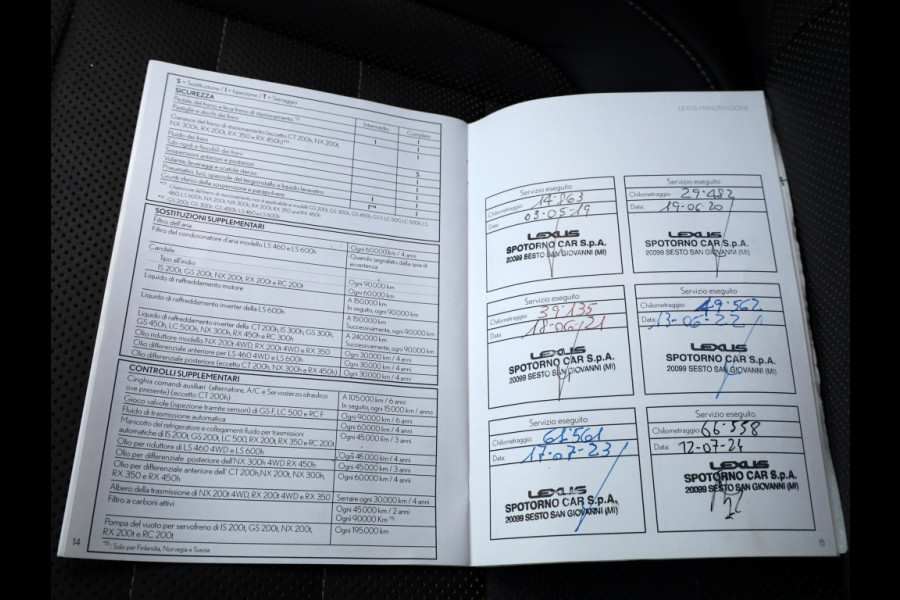 S = Sostituzione / I = Ispezione / T = Serraggio
SICUREZZA
Intermedio
Completo
Pedale del freno e leva freno di stazionamento
Pastiglie e dischi dei freni
Ganasce del freno di stazionamento (eccetto CT 200h, NX 200t,
NX 300h, RX 200t, RX 350 e RX 450h)
Fluido dei freni
Tubi rigidi e flessibili dei freni
Sospensioni anteriori e posteriori
Volante, leveraggi e scatola sterzo
Pneumatici, luci, spazzole del tergicristallo e liquido lavavetro
Giunti sferici della sospensione e parapolvere
SOSTITUZIONI SUPPLEMENTARI
Filtro dell'aria
Ogni 60.000 km / 4 anni
Filtro del condizionatore d'aria modello LS 460 e LS 600h
Quando segnalato dalla spia di
avvertenza
Candele
Tipo all'iridio
Ogni 90.000 km
IS 200t, GS 200t, NX 200t, RX 200t e RC 200t
Ogni 60.000 km
Liquido di raffreddamento motore
A 150.000 km
In seguito, ogni 90.000 km
Liquido di raffreddamento inverter della LS 600h
A 150.000 km
Successivamente, ogni 90.000 km
Liquido di raffreddamento inverter della CT 200h, IS 300h, GS 300h,
GS 450h, LC 500h, NX 300h, RX 450h e RC 300h
A 240.000 km
Successivamente, ogni 90.000 km
Olio riduttore modello NX 200t 4WD, RX 200t 4WD, e RX 350
Ogni 30.000 km / 4 anni
Olio differenziale anteriore per LS 460 4WD e LS 600h
Ogni 30.000 km / 4 anni
Olio differenziale posteriore (eccetto CT 200h, NX 300h e RX 450h)
Ogni 30.000 km / 4 anni
CONTROLLI SUPPLEMENTARI
Cinghia comandi ausiliari (alternatore, A/C e Servosterzo idraulico
ove presente) (eccetto CT 200h)
A 105.000 km / 6 anni
In seguito, ogni 15.000 km / anno
Gioco valvole (ispezione tramite sensori) di GS F, LC 500 e RC F
Ogni 90.000 km / 6 anni
Fluido di trasmissione automatica
Ogni 60.000 km / 4 anni
Manicotto del refrigeratore e collegamenti fluido per trasmissioni
automatiche di IS 200t, GS 200t, LC 500, RX 200t, RX 350 e RC 200t
Ogni 45.000 km / 3 anni
Olio per riduttore di LS 460 4WD e LS 600h
Ogni 45.000 km / 4 anni
Olio per differenziale posteriore dell'NX 300h 4WD RX 450h
Ogni 45.000 km / 3 anni
Olio per differenziale anteriore dell' CT 200h, NX 200t, NX 300h,
RX 350 e RX 450h
Ogni 60.000 km / 4 anni
Albero della trasmissione di NX 200t 4WD, RX 200t 4WD e RX 350
Serrare ogni 30.000 km / 4 anni
Filtro a carboni attivi
Ogni 45.000 km / 2 anni
Ogni 90.000 Km
Pompa del vuoto per servofreno di IS 200t, GS 200t, NX 200t,
RX 200t e RC 200t
Ogni 195.000 km
Solo per Finlandia, Norvegia e Svezia
14
Servizio eseguito
Chilometraggio: 14.863
Data: 03-05-19
LEXUS
SPOTORNO CAR S.p.A.
20099 SESTO SAN GIOVANNI (MI)
Servizio eseguito
Chilometraggio: 29.482
Data: 19-06-20
LEXUS
SPOTORNO CAR S.p.A.
20099 SESTO SAN GIOVANNI (MI)
Servizio eseguito
Chilometraggio: 39.135
Data: 18-06-21
LEXUS
SPOTORNO CAR S.p.A.
20099 SESTO SAN GIOVANNI (MI)
Servizio eseguito
Chilometraggio: 49.562
Data: 13-06-22
LEXUS
SPOTORNO CAR S.p.A.
20099 SESTO SAN GIOVANNI (MI)
Servizio eseguito
Chilometraggio: 61.501
Data: 17-07-23
LEXUS
SPOTORNO CAR S.p.A.
20099 SESTO SAN GIOVANNI (MI)
Servizio eseguito
Chilometraggio: 66-558
Data: 12-07-24
LEXUS
SPOTORNO CAR S.p.A.
20099 SESTO SAN GIOVANNI (MI)
15